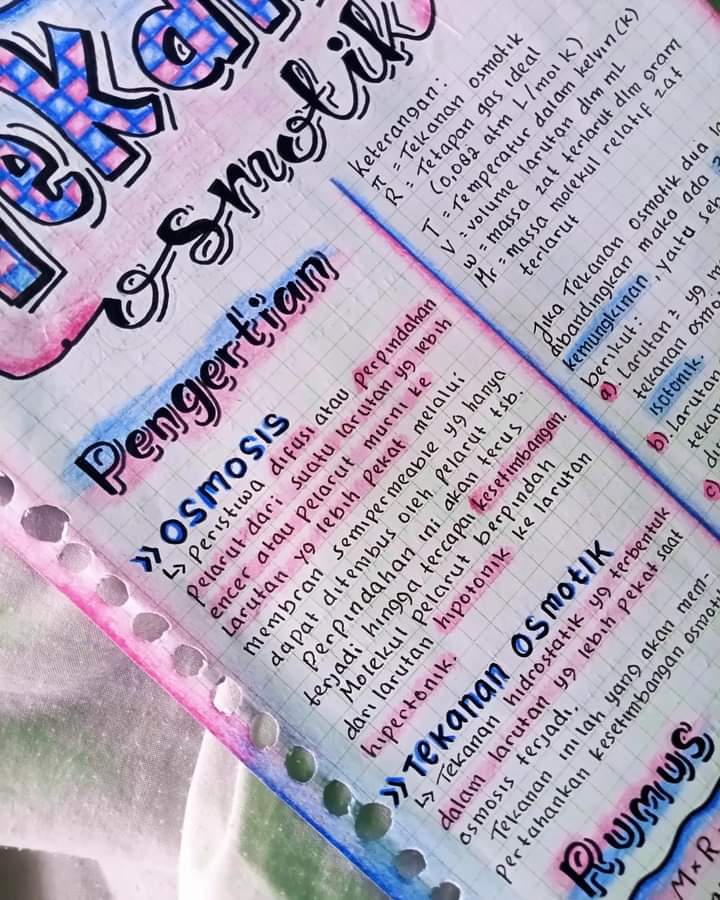 osmotik
Pengertian
>> OSMOSIS
↳ Peristiwa difusi atau perpindahan
Pelarut dari suatu larutan yg lebih
encer atau pelarut murni ke
Larutan yg lebih pekat melalui
membran semipermeable yg hanya
dapat ditembus oleh pelarut tsb.
Perpindahan ini akan terus
terjadi hingga tercapai kesetimbangan.
Molekul pelarut berpindah
dari larutan hipotonik ke larutan
hipertonik.
>> TEKANAN OSMOTIK
↳ Tekanan hidrostatik yg terbentuk
dalam larutan yg lebih pekat saat
osmosis terjadi.
Tekanan inilah yang akan mem-
pertahankan kesetimbangan
Rumus
M × R
keterangan:
π = Tekanan osmotik
R = Tetapan gas ideal
(0,082 atm L/mol K)
T = Temperatur dalam kelvin (K)
V = volume larutan dlm mL
w = massa zat terlarut dlm gram
Mr = massa molekul relatif zat
terlarut
Jika Tekanan osmotik dua
dibandingkan maka ada
kemungkinan, yaitu
berikut:
a) Larutan² yg
tekanan
isotonik.
b) Larutan
c)